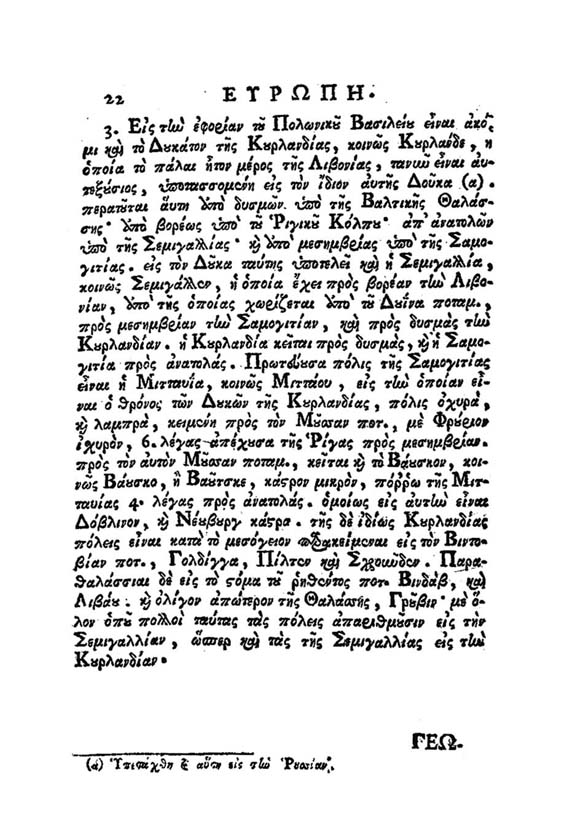 22 ΕΥΡΩΠΗ.
3. Εἰς τὴν ἐφορίαν τοῦ Πολωνικοῦ Βασιλείου εἶναι ἀκό-
μι καὶ τὸ Δουκάτον τῆς Κουρλανδίας, κοινῶς Κουρλάνδε, ἡ
ὁποία τὸ πάλαι ἦτον μέρος τῆς Λιβονίας, τανῦν εἶναι αὐ-
τεξούσιος, ὑποτασσομένη εἰς τὸν ἴδιον αὐτῆς Δοῦκα (α).
περατοῦται αὕτη ἀπὸ δυσμῶν ὑπὸ τῆς Βαλτικῆς Θαλάσ-
σης· ἀπὸ βορέως ὑπὸ τοῦ Ῥιγικοῦ Κόλπου· ἀπ' ἀνατολῶν
ὑπὸ τῆς Σεμιγαλλίας· καὶ ἀπὸ μεσημβρίας ὑπὸ τῆς Σαμο-
γιτίας. εἰς τὸν Δοῦκα ταύτης ὑποτελεῖ καὶ ἡ Σεμιγαλλία,
κοινῶς Σεμιγάλλεν, ἡ ὁποία ἔχει πρὸς βορέαν τὴν Λιβο-
νίαν, ἀπὸ τῆς ὁποίας χωρίζεται ἀπὸ τοῦ Δυΐνα ποταμ.,
πρὸς μεσημβρίαν τὴν Σαμογιτίαν, καὶ πρὸς δυσμὰς τὴν
Κουρλανδίαν. ἡ Κουρλανδία κεῖται πρὸς δυσμάς, καὶ ἡ Σαμο-
γιτία πρὸς ἀνατολάς. Πρωτεύουσα πόλις τῆς Σαμογιτίας
εἶναι ἡ Μιτταυΐα, κοινῶς Μιττάου, εἰς τὴν ὁποίαν εἶ-
ναι ὁ θρόνος τῶν Δουκῶν τῆς Κουρλανδίας, πόλις ὀχυρά,
καὶ λαμπρά, κειμένη πρὸς τὸν Μούσαν ποτ., μὲ Φρούριον
ἰχυρὸν, 6. λέγας ἀπέχουσα τῆς Ῥίγας πρὸς μεσημβρίαν.
πρὸς τὸν αὐτὸν Μούσαν ποταμ., κεῖται καὶ τὸ Βάουσκον, κοι-
νῶς Βάουσκο, ἢ Βαῦτσκε, κάστρον μικρὸν, πόῤῥω τῆς Μιτ-
ταυίας 4. λέγας πρὸς ἀνατολάς. ὁμοίως εἰς αὐτὴν εἶναι
Δόβλινον, καὶ Νέουβουργ κάστρα. τῆς δὲ ἰδίως Κουρλανδίας
πόλεις εἶναι κατὰ τὸ μεσόγειον παρακείμεναι εἰς τὸν Βιντο-
βίαν ποτ., Γολδίγγα, Πίλτεν καὶ Σχρούνδεν. Παρα-
θαλάσσιαι δὲ εἰς τὸ στόμα τοῦ ῥηθέντος ποτ. Βινδάβ, καὶ
Λιβάου: καὶ ὀλίγον ἀπώτερον τῆς Θαλάσσης, Γροῦβιν· μὲ ὅ-
λον ὁποῦ πολλοὶ ταύτας τὰς πόλεις ἀπαριθμοῦσιν εἰς τὴν
Σεμιγαλλίαν, ὥσπερ καὶ τὰς τῆς Σεμιγαλλίας εἰς τὴν
Κουρλανδίαν.
ΓΕΩ-
(α) Ὑπετάχθη καὶ αὕτη εἰς τὴν Ῥωσίαν.